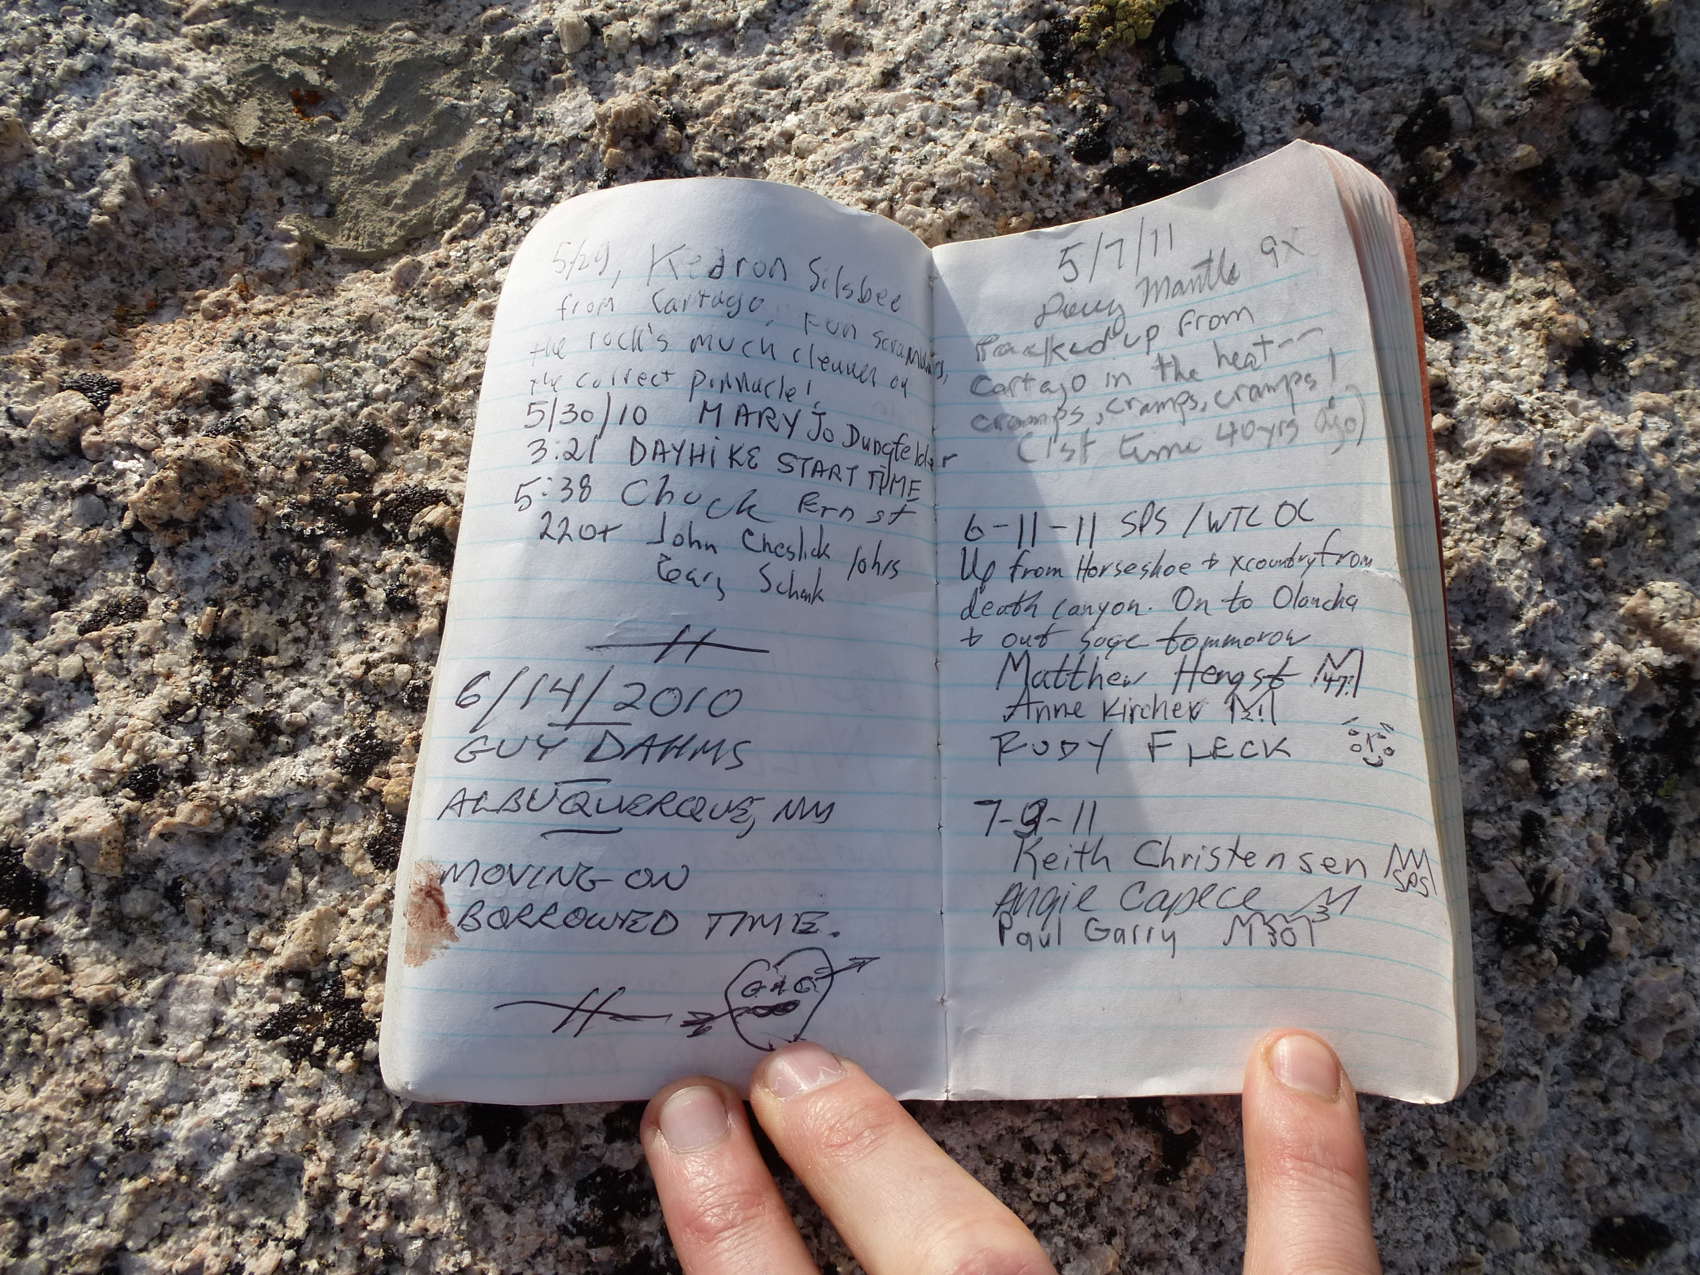 5/29, Kedron Silsbee
from Cartago. Fun scrambling,
the rock's much cleaner on
the correct pinnacle!
5/30/10 MARY Jo Dungfelder
3:21 DAYHIKE START TIME
5:38 Chuck Ernst
220+ John Cheslick 10hrs
Schenk
6/14/2010
GUY DAHMS
ALBUQUERQUE, NM
MOVING ON
BORROWED TIME.
G+G
5/7/11
Doug Mantle 9X
Packed up from
Cartago in the heat--
cramps, cramps, cramps!
(1st time 40yrs ago)
6-11-11 SPS/WTC OC
Up from Horseshoe + xcountry from
death canyon. On to Olancha
+ out sage tommorow
Matthew Hengst
Anne Kircher
RUDY FLECK
7-9-11
Keith Christensen SPS
Angie Capece
Paul Garry